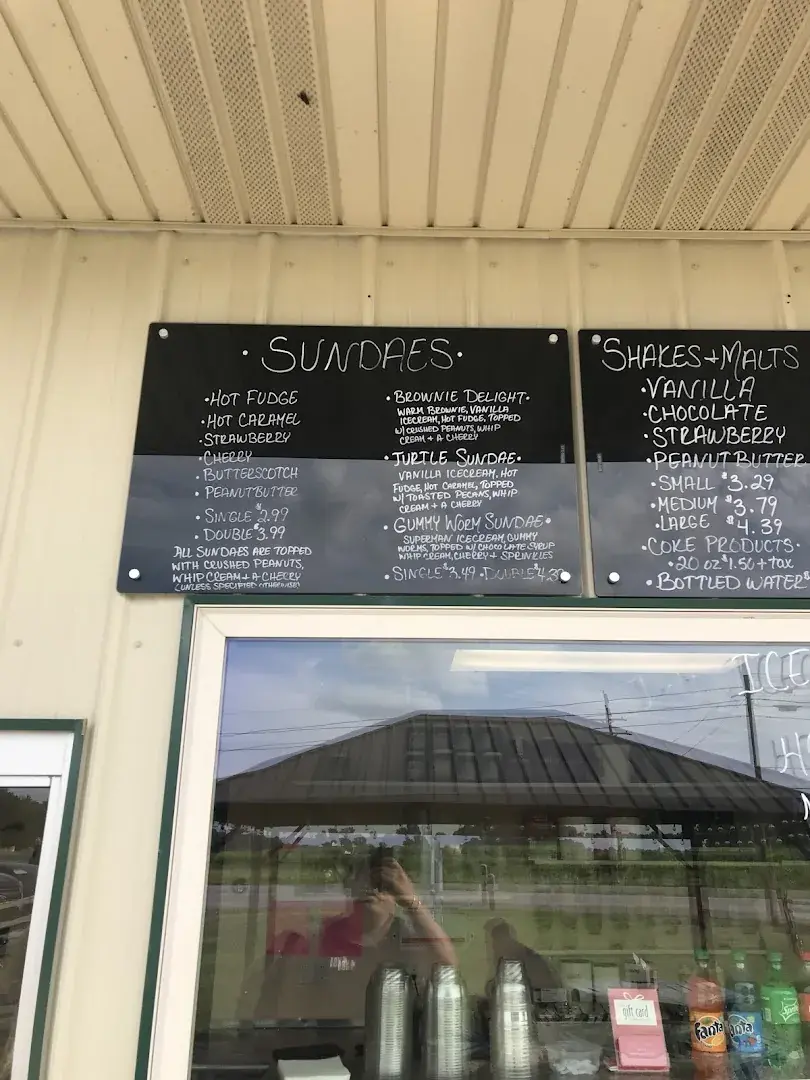 • SUNDAES •
• HOT FUDGE
• HOT CARAMEL
• STRAWBERRY
• CHERRY
• BUTTERSCOTCH
• PEANUT BUTTER
• SINGLE $2.99
• DOUBLE $3.99
ALL SUNDAES ARE TOPPED
WITH CRUSHED PEANUTS,
WHIP CREAM + A CHERRY
(UNLESS SPECIFIED OTHERWISE)
• BROWNIE DELIGHT •
WARM BROWNIE, VANILLA
ICECREAM, HOT FUDGE, TOPPED
W/ CRUSHED PEANUTS, WHIP
CREAM + A CHERRY
• TURTLE SUNDAE •
VANILLA ICECREAM, HOT
FUDGE, HOT CARAMEL, TOPPED
W/ TOASTED PECANS, WHIP
CREAM + A CHERRY
• GUMMY WORM SUNDAE •
SUPERMAN ICECREAM, GUMMY
WORMS, TOPPED W/ CHOCOLATE SYRUP
WHIP CREAM, CHERRY + SPRINKLES
• SINGLE $3.49 • DOUBLE $4.39
SHAKES + MALTS
• VANILLA
• CHOCOLATE
• STRAWBERRY
• PEANUT BUTTER
• SMALL $3.29
• MEDIUM $3.79
• LARGE $4.39
• COKE PRODUCTS •
• 20 oz $1.50 + tax
• BOTTLED WATER $
ICE
gift card
Fanta
Fanta
Sprite